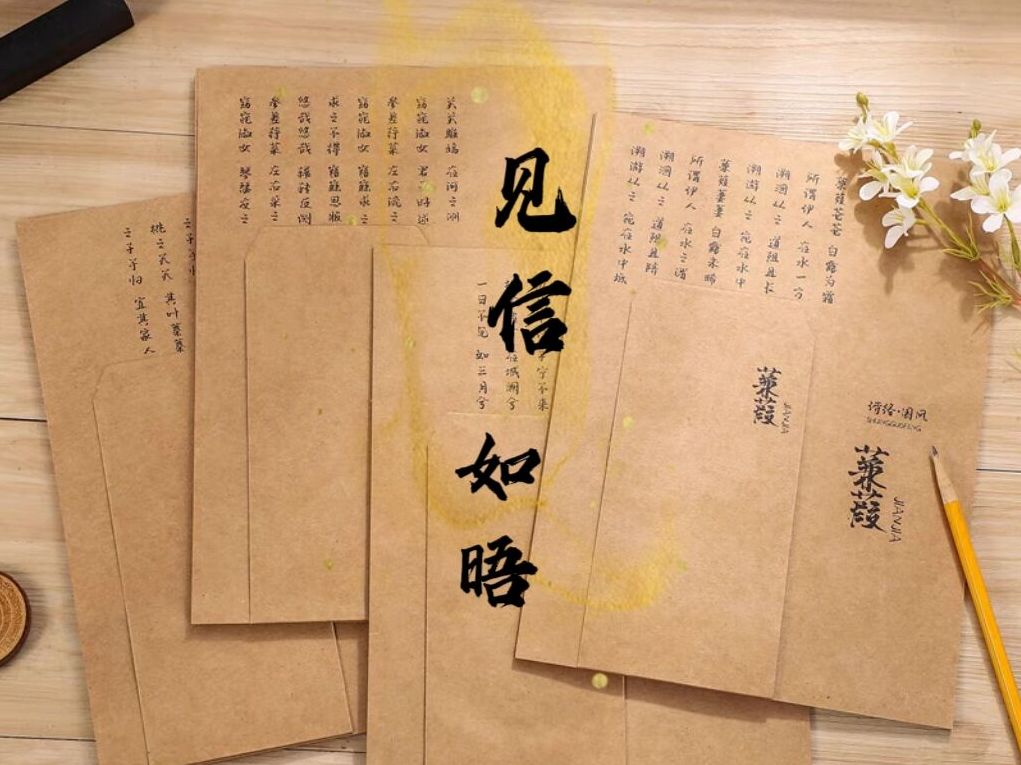 见信如晤
蒹葭苍苍 白露为霜
所谓伊人 在水一方
溯洄从之 道阻且长
溯游从之 宛在水中
蒹葭萋萋 白露未晞
所谓伊人 在水之湄
溯洄从之 道阻且跻
溯游从之 宛在水中坻
蒹葭
JIANJIA
国风
蒹葭
JIANJIA
关关雎鸠 在河之洲
窈窕淑女 君子好逑
参差荇菜 左右流之
窈窕淑女 寤寐求之
求之不得 寤寐思服
悠哉悠哉 辗转反侧
参差荇菜 左右采之
窈窕淑女 琴瑟友之
子宁不来
在城阙兮
一日不见 如三月兮
之子于
桃之夭夭 其叶蓁蓁
之子于归 宜其家人